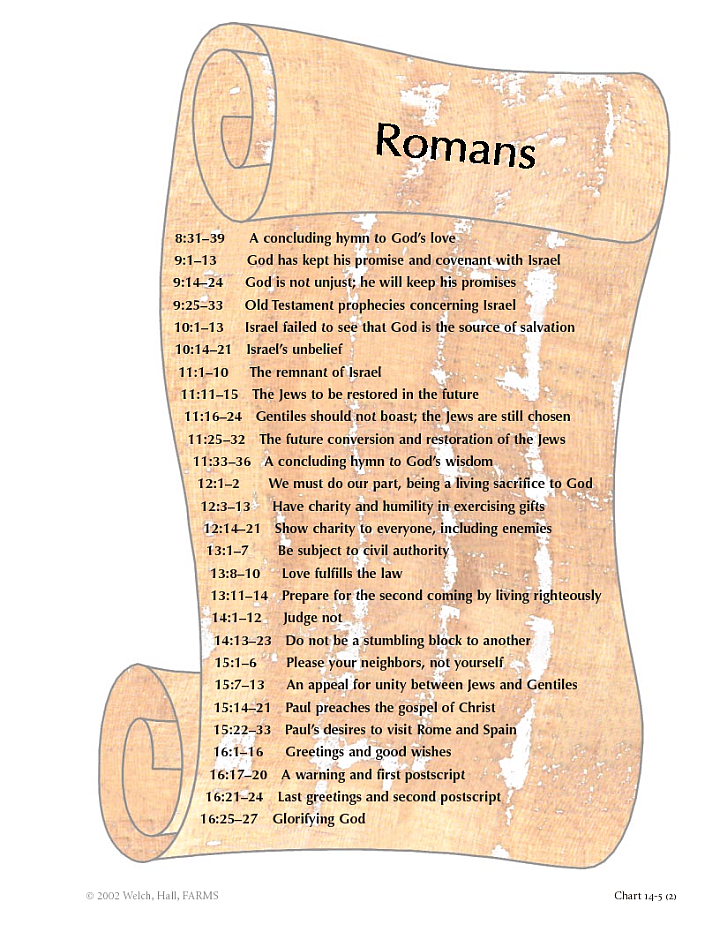 Romans
8:31–39 A concluding hymn to God's love
9:1–13 God has kept his promise and covenant with Israel
9:14–24 God is not unjust; he will keep his promises
9:25–33 Old Testament prophecies concerning Israel
10:1–13 Israel failed to see that God is the source of salvation
10:14–21 Israel's unbelief
11:1–10 The remnant of Israel
11:11–15 The Jews to be restored in the future
11:16–24 Gentiles should not boast; the Jews are still chosen
11:25–32 The future conversion and restoration of the Jews
11:33–36 A concluding hymn to God's wisdom
12:1–2 We must do our part, being a living sacrifice to God
12:3–13 Have charity and humility in exercising gifts
12:14–21 Show charity to everyone, including enemies
13:1–7 Be subject to civil authority
13:8–10 Love fulfills the law
13:11–14 Prepare for the second coming by living righteously
14:1–12 Judge not
14:13–23 Do not be a stumbling block to another
15:1–6 Please your neighbors, not yourself
15:7–13 An appeal for unity between Jews and Gentiles
15:14–21 Paul preaches the gospel of Christ
15:22–33 Paul's desires to visit Rome and Spain
16:1–16 Greetings and good wishes
16:17–20 A warning and first postscript
16:21–24 Last greetings and second postscript
16:25–27 Glorifying God
© 2002 Welch, Hall, FARMS Chart 14-5 (2)